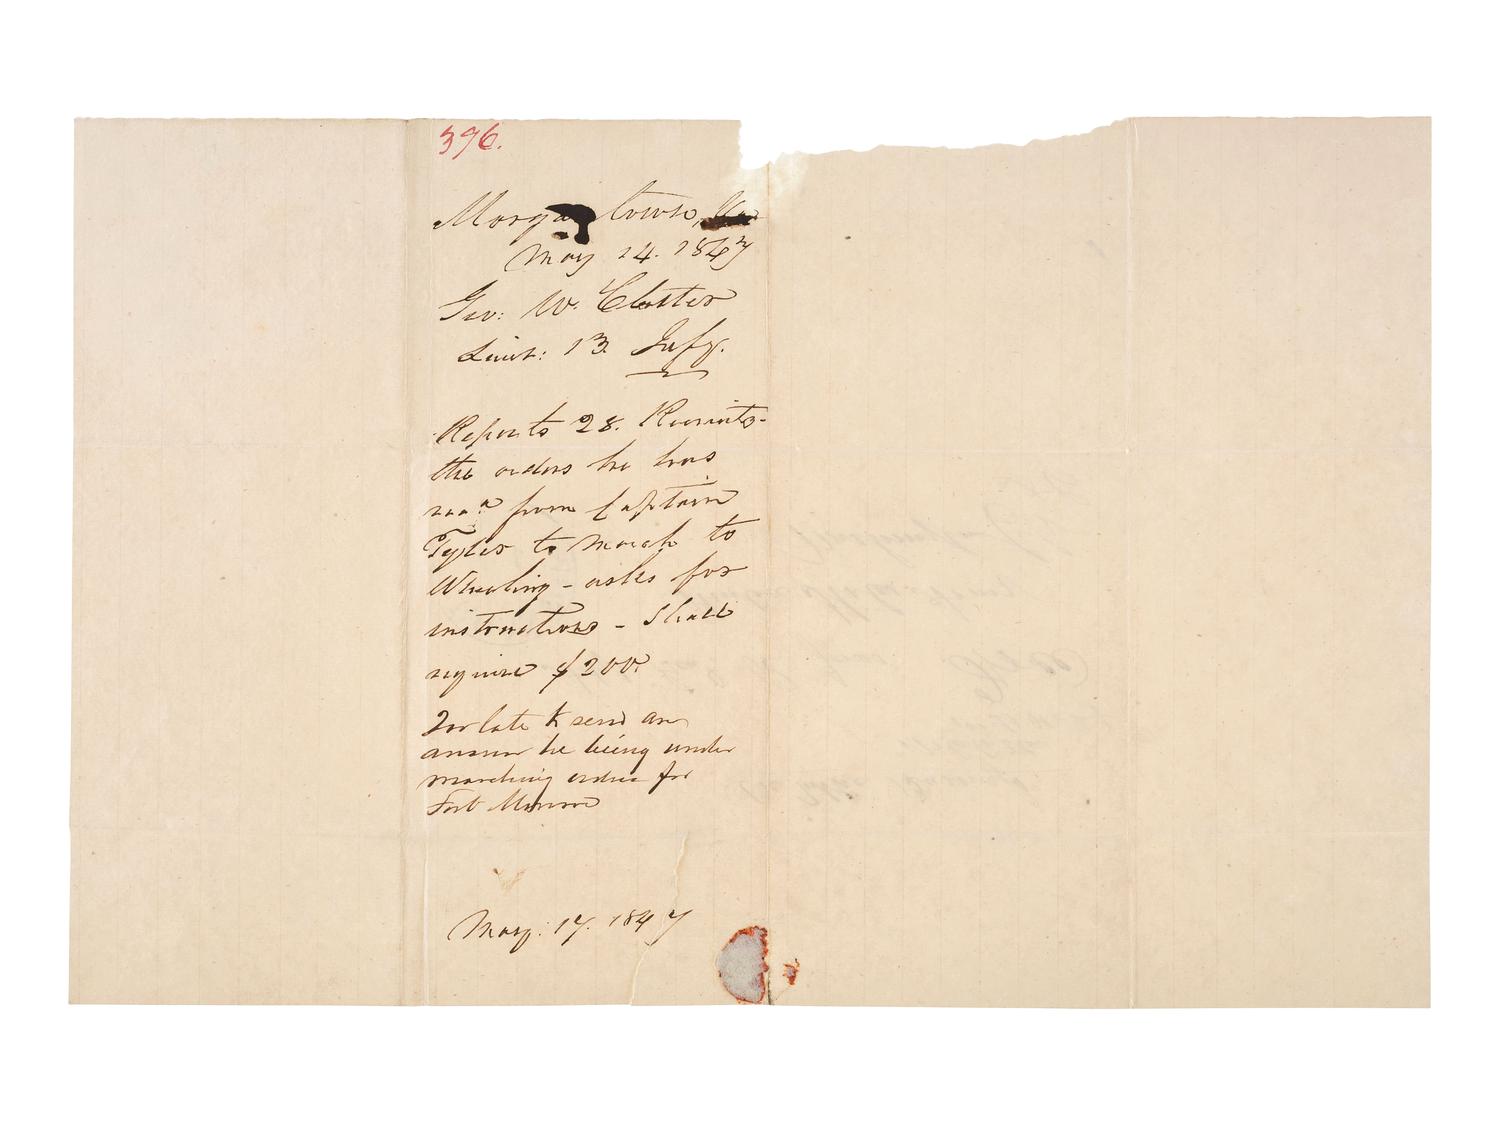 396.
Morgantown, Va
May 14. 1847
Geo: W. Clutter
Lieut: 13. Infy.
Reports 28. Recruits-
the orders he has
rec.d from Captain
Tyler to march to
Wheeling - asks for
instructions - Shall
require $200.
Too late to send an
answer he being under
marching orders for
Fort Monroe
May. 17. 1847